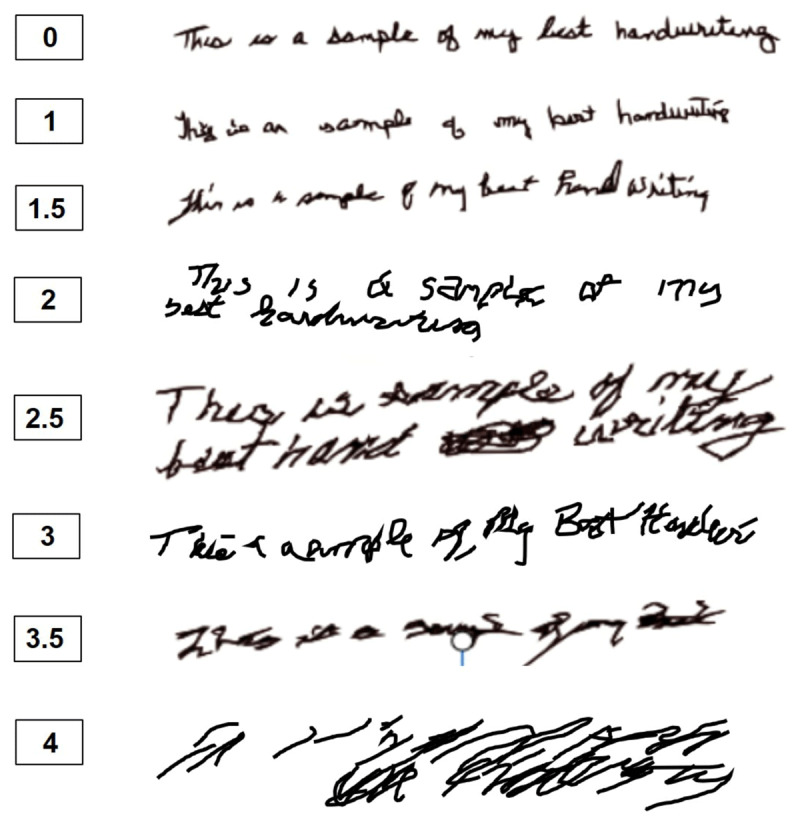 0
This is a sample of my best handwriting
1
This is an sample of my best handwriting
1.5
This is a sample of my best hand writing
2
This is a sample of my
best handwriting
2.5
This is sample of my
best hand writing
3
a sample of My Best
3.5
This is a of my
4